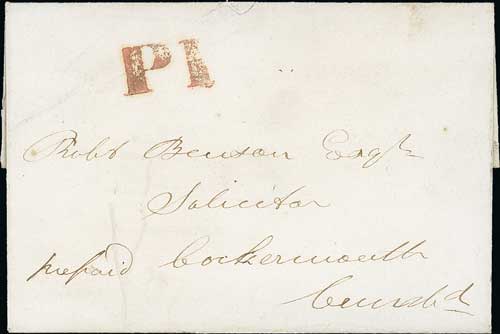 P1
Robt Benson Esqr
Solicitor
prepaid Cockermouth
Cumbd